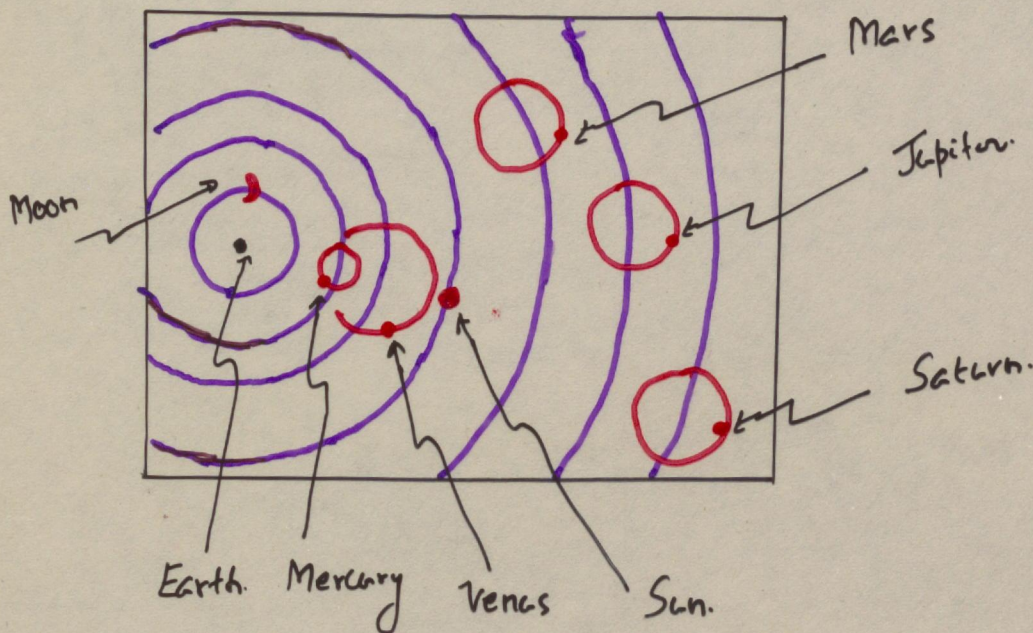 Mars
Jupiter.
Moon
Saturn.
Earth.
Mercury
Venus
Sun.